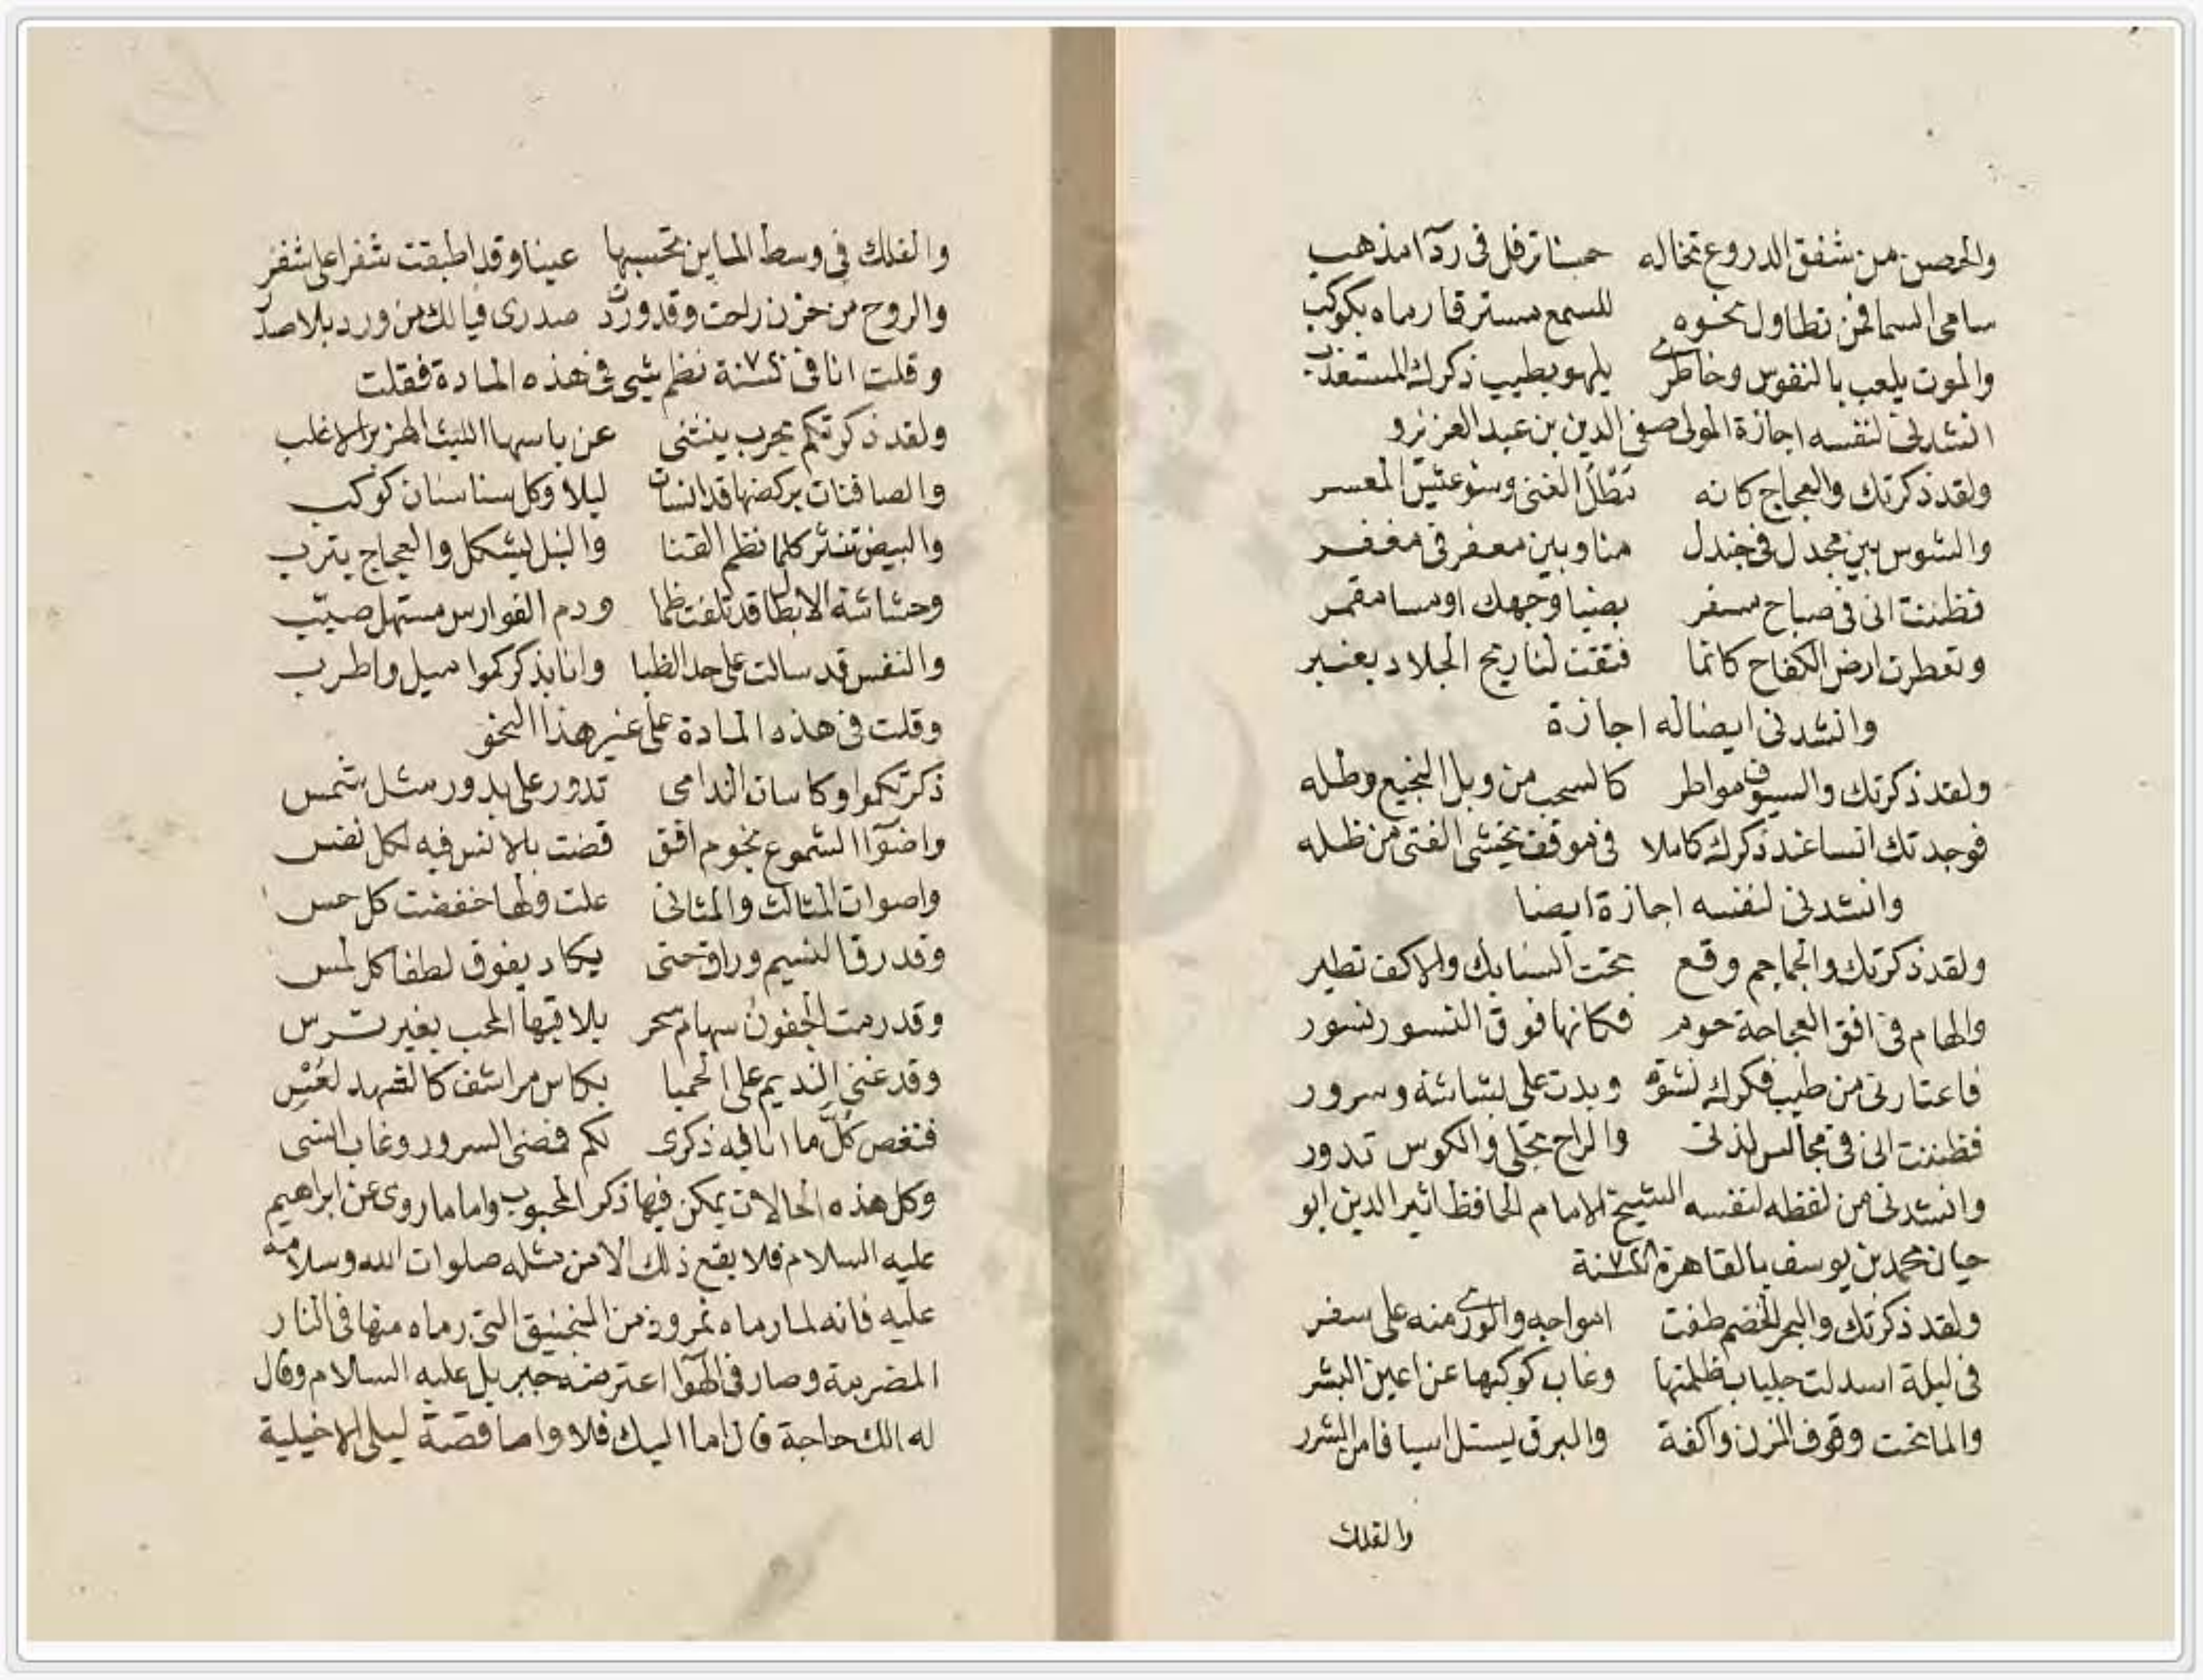 والحصن من شفق الدروع تخاله حسنا ترفل في رداء مذهب
سامى السما فمن تطاول نحوه للسمع مسترقا رماه بكوكب
والموت يلعب بالنفوس وخاطرى يلهو بطيب ذكرك المستعذب
انشدنى لنفسه اجازة المولى صفى الدين بن عبد العزيز و
ولقد ذكرتك والعجاج كانه مَطْلُ الغنى وسوء عَيْش المعسر
والشوس بين مجدل فى جندل منا وبين معفر فى مغفر
فظننت انى فى صباح مسفر بضيا وجهك او مسا مقمر
وتعطرت ارض الكفاح كانما فتقت لنا ريح الجلاد بعنبر
وانشدنى ايضا له اجازة
ولقد ذكرتك والسيوف مواطر كالسحب من وبل النجيع وطله
فوجدتك انسا عند ذكرك كاملا فى موقف يخشى الفتى من ظله
وانشدنى لنفسه اجازة ايضا
ولقد ذكرتك والجماجم وقع تحت السنابك والاكف تطير
والهام فى افق العجاجة حوم فكانها فوق النسور نسور
فاعتارنى من طيب فكرك نشوة وبدت على بشاشة وسرور
فظننت انى فى مجالس لذتى والراح تجلى والكوس تدور
وانشدنى من لفظه لنفسه الشيخ الامام الحافظ اثير الدين ابو
حيان محمد بن يوسف بالقاهرة سنة
ولقد ذكرتك والبحر الخضم طغت امواجه والورى منه على سفر
فى ليلة اسدلت جلباب ظلمتها وغاب كوكبها عن اعين البشر
والما تحت وفوق المزن واكفة والبرق يستل اسيافا من الشرر
والفلك
والفلك فى وسط الماين تحسبها عينا وقد اطبقت شفرا على شفر
والروح من حزن راحت وقد وردت صدرى فيا لك من ورد بلا صدر
وقلت انا فى سنة نظم شى فى هذه المادة فقلت
ولقد ذكرتكم بحرب ينثنى عن باسها الليث الهزبر الاغلب
والصافنات بركضها قد انشات ليلا وكل سنا سنان كوكب
والبيض تنثر كلما نظم القنا والنبل يشكل والعجاج يترب
وحشاشة الابطال قد تلفت ظما ودم الفوارس مستهل صيّب
والنفس قد سالت على حد الظبا وانا بذكركموا اميل واطرب
وقلت فى هذه المادة على غير هذا النحو
ذكرتكموا وكاسات الندامى تدور على بدور مثل شمس
واضوآ الشموع نجوم افق قضت بالانس فيه لكل نفس
واصوات المثالث والمثانى علت ولها خفضت كل حس
وقد رق النسيم وراق حتى يكاد يفوق لطفا كل لمس
وقد رمت الجفون سهام سحر يلاقيها المحب بغير ترس
وقد غنى النديم على الحميا بكاس مراشف كالشهد لُعْسِ
فنغص كلَّ ما انا فيه ذكرى لكم فمضى السرور وغاب انسى
وكل هذه الحالات يمكن فيها ذكر المحبوب واما ما روى عن ابراهيم
عليه السلام فلا يقع ذلك الا من مثله صلوات الله وسلامه
عليه فانه لما رماه نمروذ من المنجنيق التى رماه منها فى النار
المضرمة وصار فى الهوآ اعترضه جبريل عليه السلام وقال
له الك حاجة قال اما اليك فلا واما قصة ليلى الاخيلية